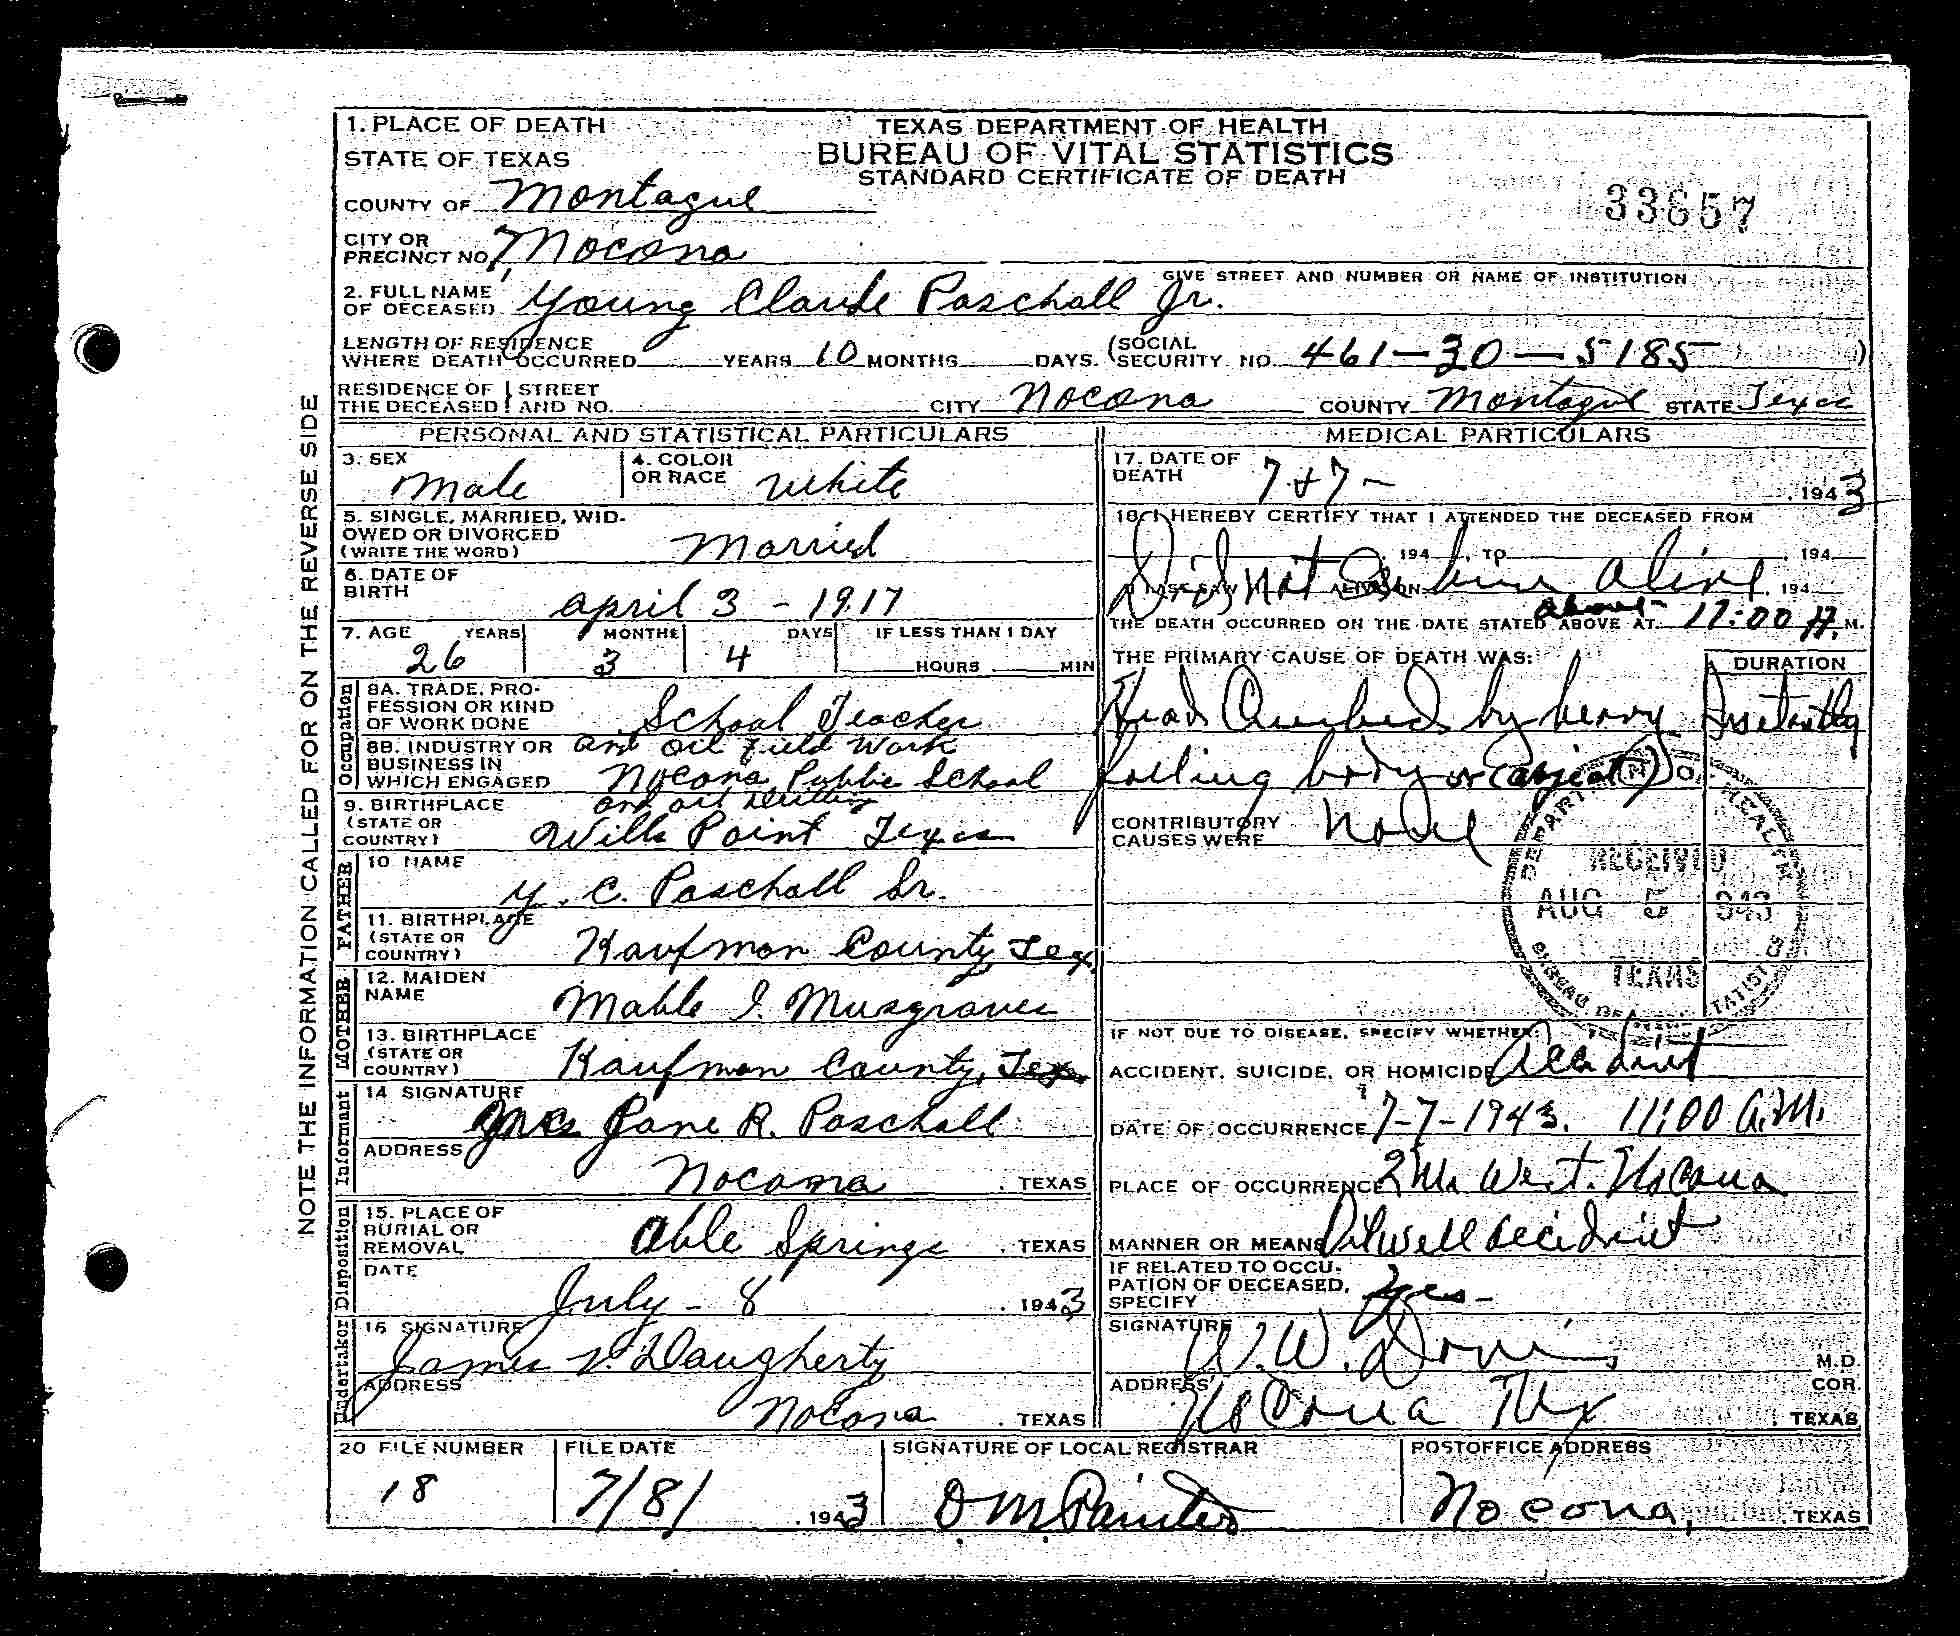 1. PLACE OF DEATH
STATE OF TEXAS
TEXAS DEPARTMENT OF HEALTH
BUREAU OF VITAL STATISTICS
STANDARD CERTIFICATE OF DEATH
33657
COUNTY OF Montague
CITY OR PRECINCT NO. Nocona
GIVE STREET AND NUMBER OR NAME OF INSTITUTION
2. FULL NAME OF DECEASED Young Claude Paschall Jr.
LENGTH OF RESIDENCE WHERE DEATH OCCURRED YEARS 10 MONTHS DAYS. (SOCIAL SECURITY NO. 461-30-5185)
RESIDENCE OF THE DECEASED STREET AND NO. CITY Nocona COUNTY Montague STATE Texas
PERSONAL AND STATISTICAL PARTICULARS
3. SEX Male
4. COLOR OR RACE White
5. SINGLE, MARRIED, WIDOWED OR DIVORCED (WRITE THE WORD) Married
6. DATE OF BIRTH April 3 - 1917
7. AGE YEARS 26 MONTHS 3 DAYS 4 IF LESS THAN 1 DAY HOURS MIN
Occupation
8A. TRADE, PROFESSION OR KIND OF WORK DONE School Teacher
and oil field work
8B. INDUSTRY OR BUSINESS IN WHICH ENGAGED Nocona Public School
and oil drilling
9. BIRTHPLACE (STATE OR COUNTRY) Wills Point Texas
FATHER
10 NAME Y. C. Paschall Sr.
11. BIRTHPLACE (STATE OR COUNTRY) Kaufman County, Tex.
MOTHER
12. MAIDEN NAME Mable I. Musgraves
13. BIRTHPLACE (STATE OR COUNTRY) Kaufman County, Tex.
Informant
14 SIGNATURE Mrs Jane R. Paschall
ADDRESS Nocona, TEXAS
Disposition
15. PLACE OF BURIAL OR REMOVAL Able Springs, TEXAS
DATE July - 8, 1943
Undertaker
16 SIGNATURE James V. Daugherty
ADDRESS Nocona, TEXAS
MEDICAL PARTICULARS
17. DATE OF DEATH 7 + 7 - , 1943
18. I HEREBY CERTIFY THAT I ATTENDED THE DECEASED FROM
, 194 , TO , 194
Did not See him alive, 194
THE DEATH OCCURRED ON THE DATE STATED ABOVE AT above 11:00 A. M.
THE PRIMARY CAUSE OF DEATH WAS: DURATION
Head Crushed by heavy Instantly
falling body or (object)
CONTRIBUTORY CAUSES WERE None
DEPARTMENT OF HEALTH
RECEIVED
AUG 5 1943
TEXAS
BUREAU OF VITAL STATISTICS
IF NOT DUE TO DISEASE, SPECIFY WHETHER:
ACCIDENT, SUICIDE, OR HOMICIDE Accident
DATE OF OCCURRENCE 7-7-1943. 11:00 A.M.
PLACE OF OCCURRENCE 2 Mi. West. Nocona
MANNER OR MEANS Oilwell accident
IF RELATED TO OCCUPATION OF DECEASED, SPECIFY Yes -
SIGNATURE W. W. M.D.
ADDRESS Nocona Tex COR. , TEXAS
20 FILE NUMBER 18
FILE DATE 7/8/, 1943
SIGNATURE OF LOCAL REGISTRAR O. M. Painter
POSTOFFICE ADDRESS Nocona, TEXAS
NOTE THE INFORMATION CALLED FOR ON THE REVERSE SIDE